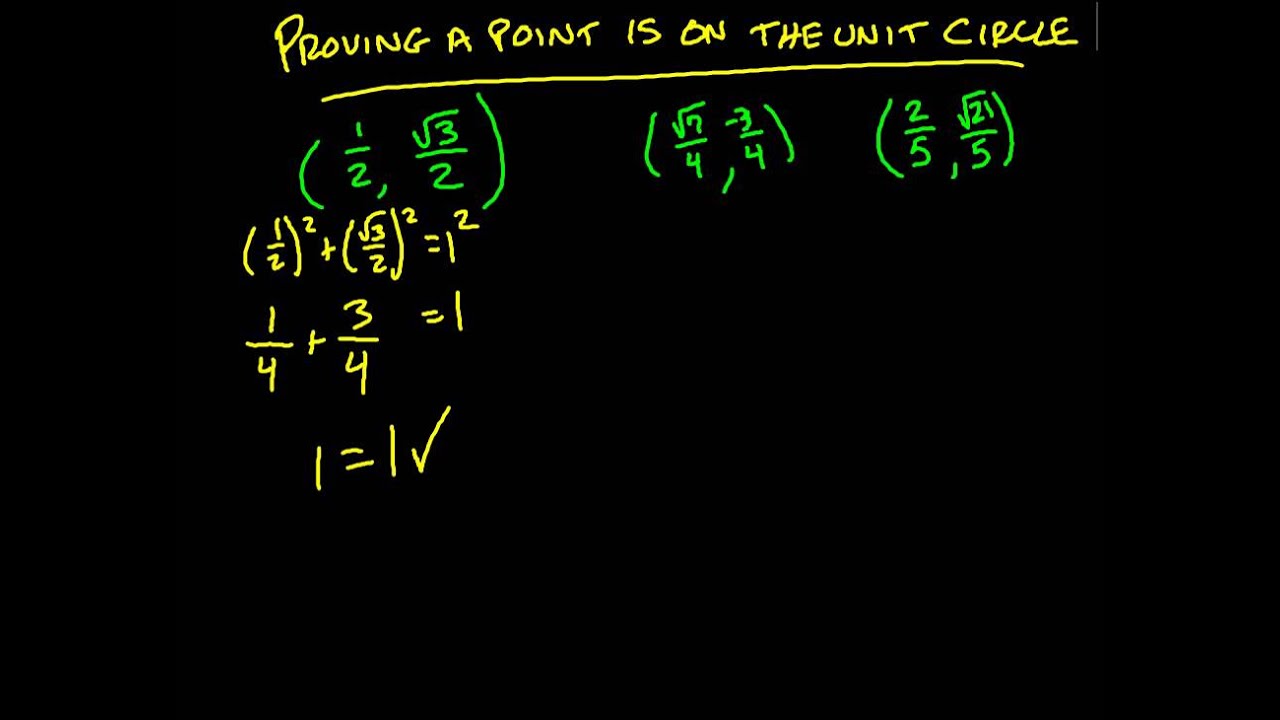 PROVING A POINT IS ON THE UNIT CIRCLE
(1/2, √3/2) (√7/4, -3/4) (2/5, √21/5)
(1/2)² + (√3/2)² = 1²
1/4 + 3/4 = 1
1 = 1 ✓